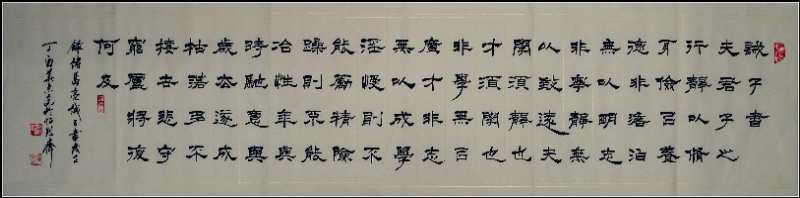 誡子書
夫君子之
行靜以脩
身儉以養
德非澹泊
無以明志
非寧靜無
以致遠夫
學須靜也
才須學也
非學無以
廣才非志
無以成學
淫慢則不
能勵精險
躁則不能
冶性年與
時馳意與
歲去遂成
枯落多不
接世悲守
窮廬將復
何及
錄諸葛亮誡子書
丁酉